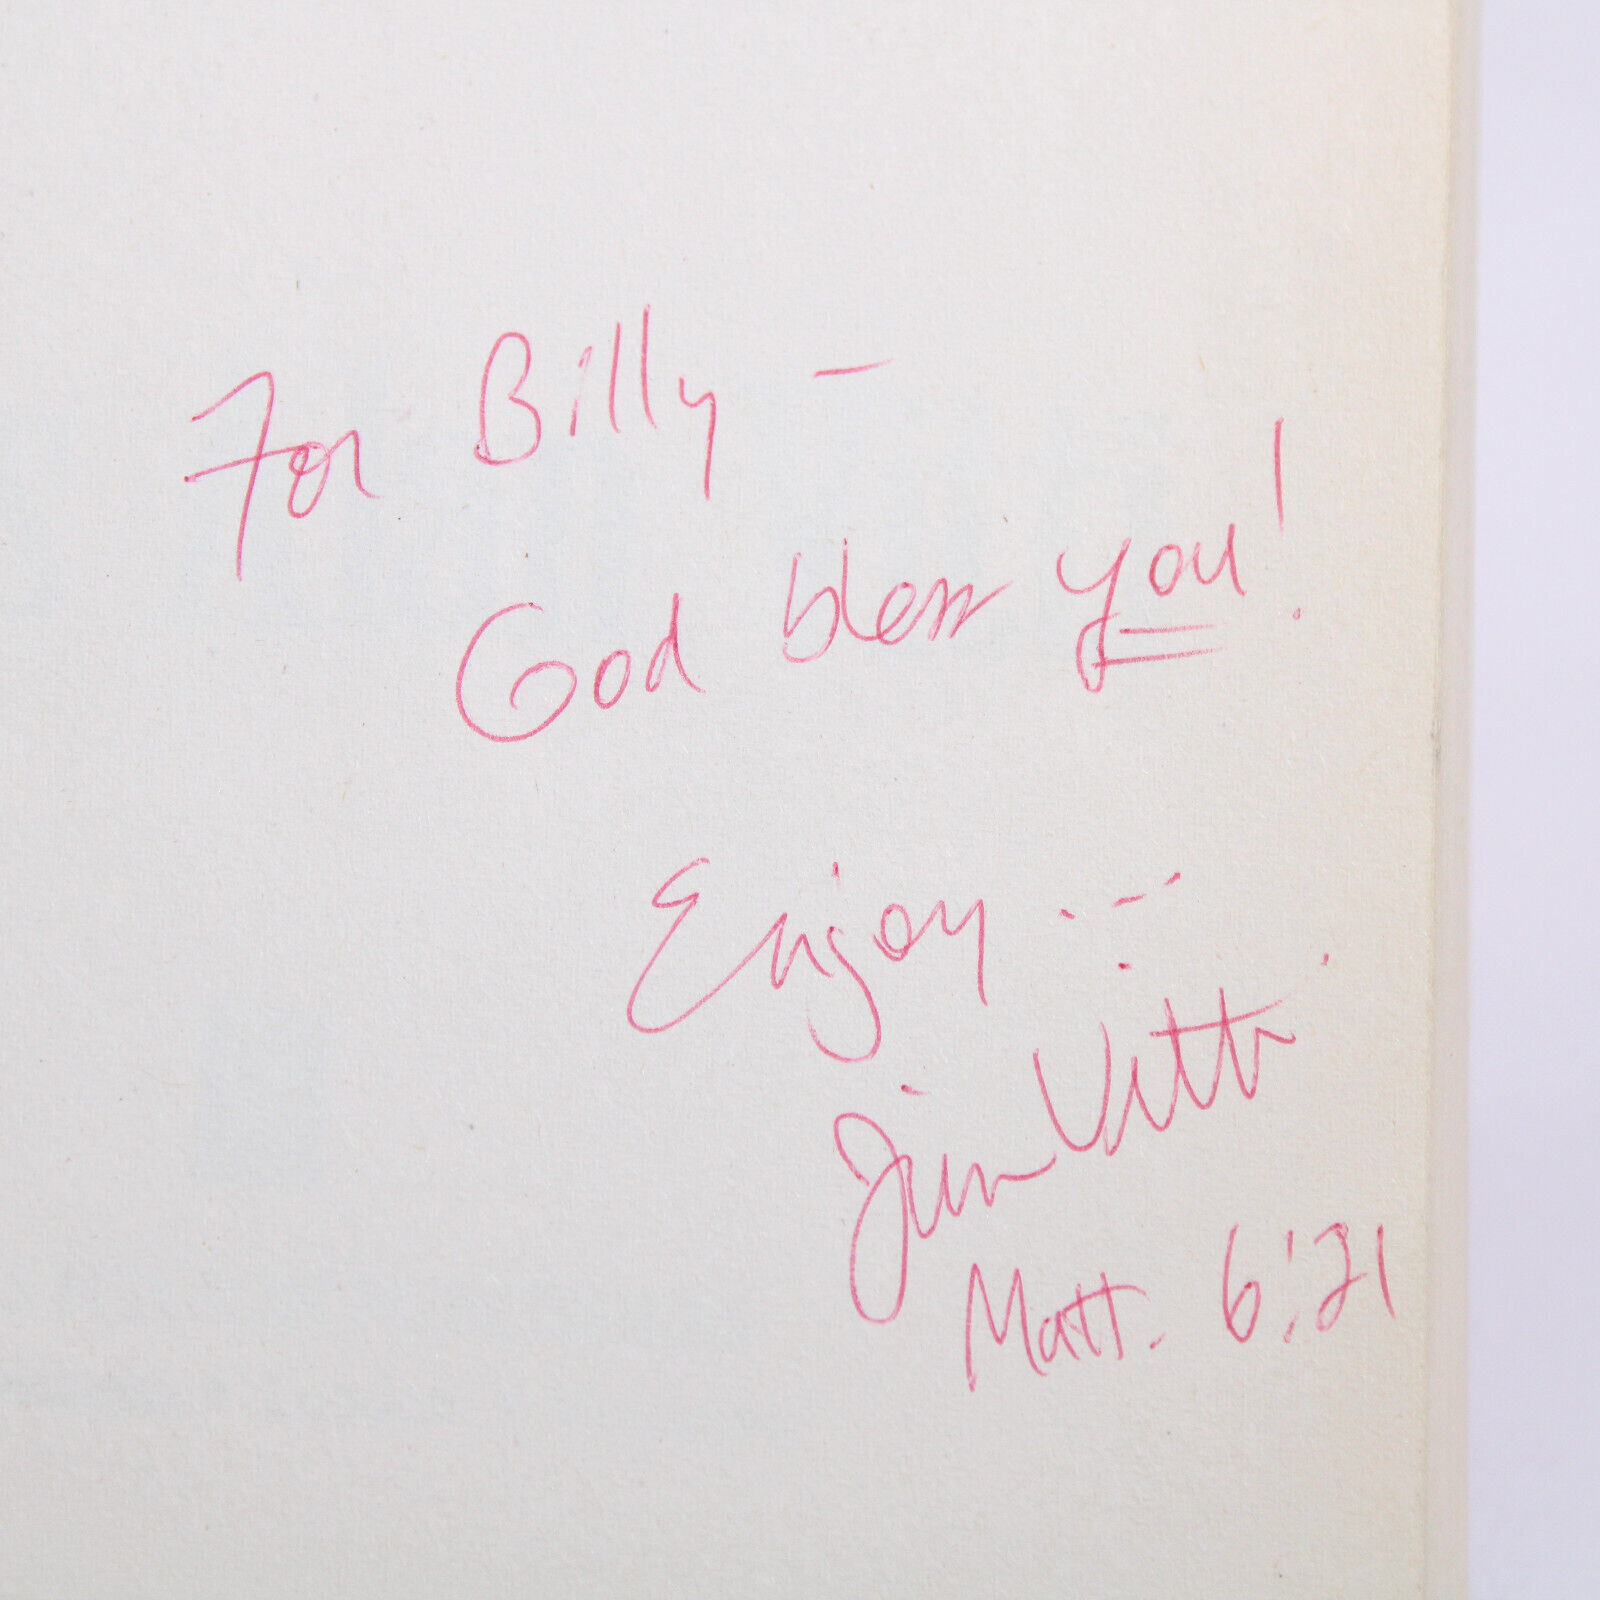 For Billy –
God bless you!
Enjoy ...
Jim Vitti
Matt. 6:21